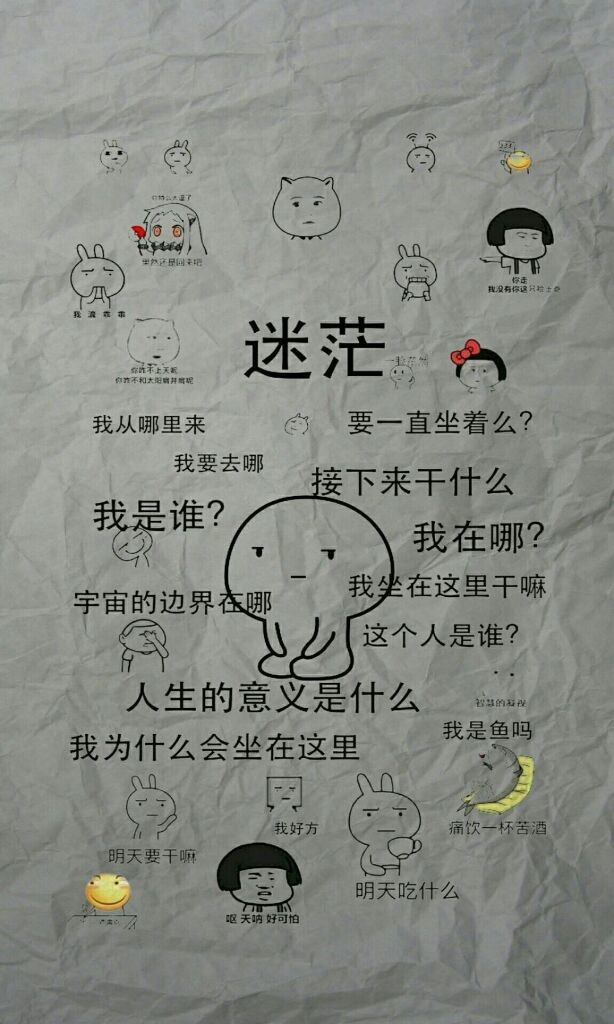 你特么太逗了
果然还是回来吧
我 滴 乖 乖
你走
你咋不上天呢
你咋不和太阳肩并肩呢
迷茫
一脸茫然
我从哪里来
要一直坐着么?
我要去哪
接下来干什么
我是谁?
我在哪?
我坐在这里干嘛
宇宙的边界在哪
这个人是谁?
人生的意义是什么
智慧的凝视
我是鱼吗
我为什么会坐在这里
我好方
痛饮一杯苦酒
明天要干嘛
明天吃什么
呕 天呐 好可怕